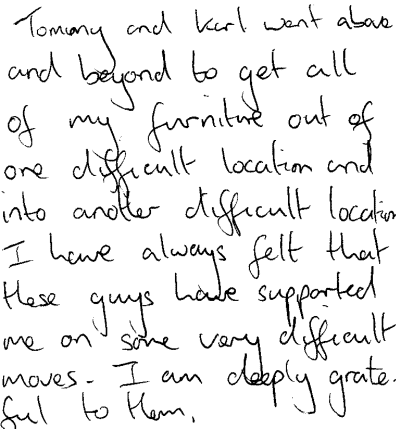 Tommy and Karl went above
and beyond to get all
of my furniture out of
one difficult location and
into another difficult location
I have always felt that
these guys have supported
me on some very difficult
moves - I am deeply grate-
ful to them.